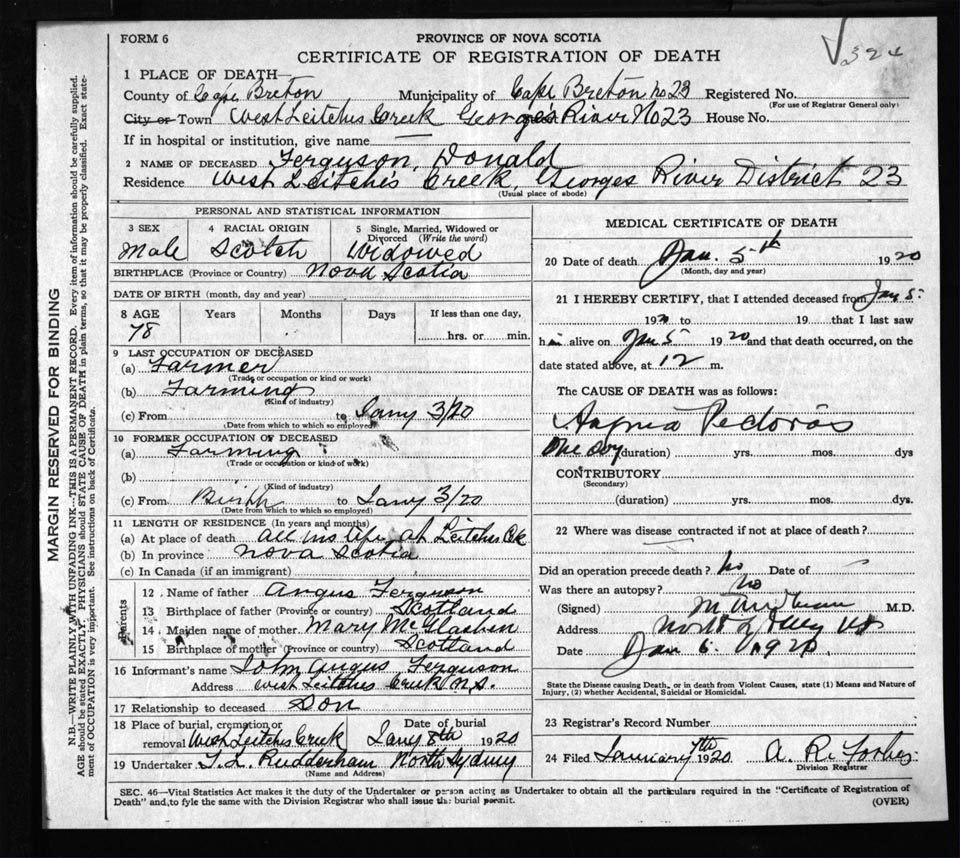 FORM 6
PROVINCE OF NOVA SCOTIA
324
CERTIFICATE OF REGISTRATION OF DEATH
1 PLACE OF DEATH—
County of Cape Breton Municipality of Cape Breton No 23 Registered No.
(For use of Registrar General only)
City or Town West Leitches Creek Georges River No 23 House No.
If in hospital or institution, give name —
2 NAME OF DECEASED Ferguson, Donald
Residence West Leitches Creek, Georges River District 23
(Usual place of abode)
PERSONAL AND STATISTICAL INFORMATION
3 SEX 4 RACIAL ORIGIN 5 Single, Married, Widowed or Divorced (Write the word)
Male Scotch Widowed
BIRTHPLACE (Province or Country) Nova Scotia
DATE OF BIRTH (month, day and year)
8 AGE Years Months Days If less than one day,
78 hrs. or min.
9 LAST OCCUPATION OF DECEASED
(a) Farmer
(Trade or occupation or kind or work)
(b) Farming
(Kind of industry)
(c) From to Jany 3/20
(Date from which to which so employed)
10 FORMER OCCUPATION OF DECEASED
(a) Farming
(Trade or occupation or kind of work)
(b)
(Kind of industry)
(c) From Birth to Jany 3/20
(Date from which to which so employed)
11 LENGTH OF RESIDENCE (In years and months)
(a) At place of death all his life at Leitches Crk
(b) In province Nova Scotia
(c) In Canada (if an immigrant)
Parents
12 Name of father Angus Ferguson
13 Birthplace of father (Province or country) Scotland
14 Maiden name of mother Mary McGlashen
15 Birthplace of mother (Province or country) Scotland
16 Informant's name John Angus Ferguson
Address West Leitches Creek N.S.
17 Relationship to deceased Son
18 Place of burial, cremation or removal West Leitches Creek Date of burial Jany 8th 1920
19 Undertaker T. L. Rudderham North Sydney
(Name and Address)
MEDICAL CERTIFICATE OF DEATH
20 Date of death Jan. 5th 1920
(Month, day and year)
21 I HEREBY CERTIFY, that I attended deceased from Jan 5
1920 to 19 that I last saw
him alive on Jan 5 1920 and that death occurred, on the
date stated above, at 12 m.
The CAUSE OF DEATH was as follows:
Angina Pectoris
One day (duration) yrs. mos. dys
CONTRIBUTORY
(Secondary)
(duration) yrs. mos. dys.
22 Where was disease contracted if not at place of death?
Did an operation precede death? No Date of
Was there an autopsy? No
(Signed) M.D.
Address North Sydney NS
Date Jan 6. 1920
State the Disease causing Death, or in death from Violent Causes, state (1) Means and Nature of
Injury, (2) whether Accidental, Suicidal or Homicidal.
23 Registrar's Record Number
24 Filed January 7th 1920 A. R. Forbes
Division Registrar
SEC. 46—Vital Statistics Act makes it the duty of the Undertaker or person acting as Undertaker to obtain all the particulars required in the "Certificate of Registration of
Death" and to fyle the same with the Division Registrar who shall issue the burial permit.
(OVER)
MARGIN RESERVED FOR BINDING
N.B.—WRITE PLAINLY WITH UNFADING INK—THIS IS A PERMANENT RECORD. Every item of information should be carefully supplied.
AGE should be stated EXACTLY. PHYSICIANS should STATE CAUSE OF DEATH in plain terms, so that it may be properly classified. Exact state-
ment of OCCUPATION is very important. See instructions on back of Certificate.